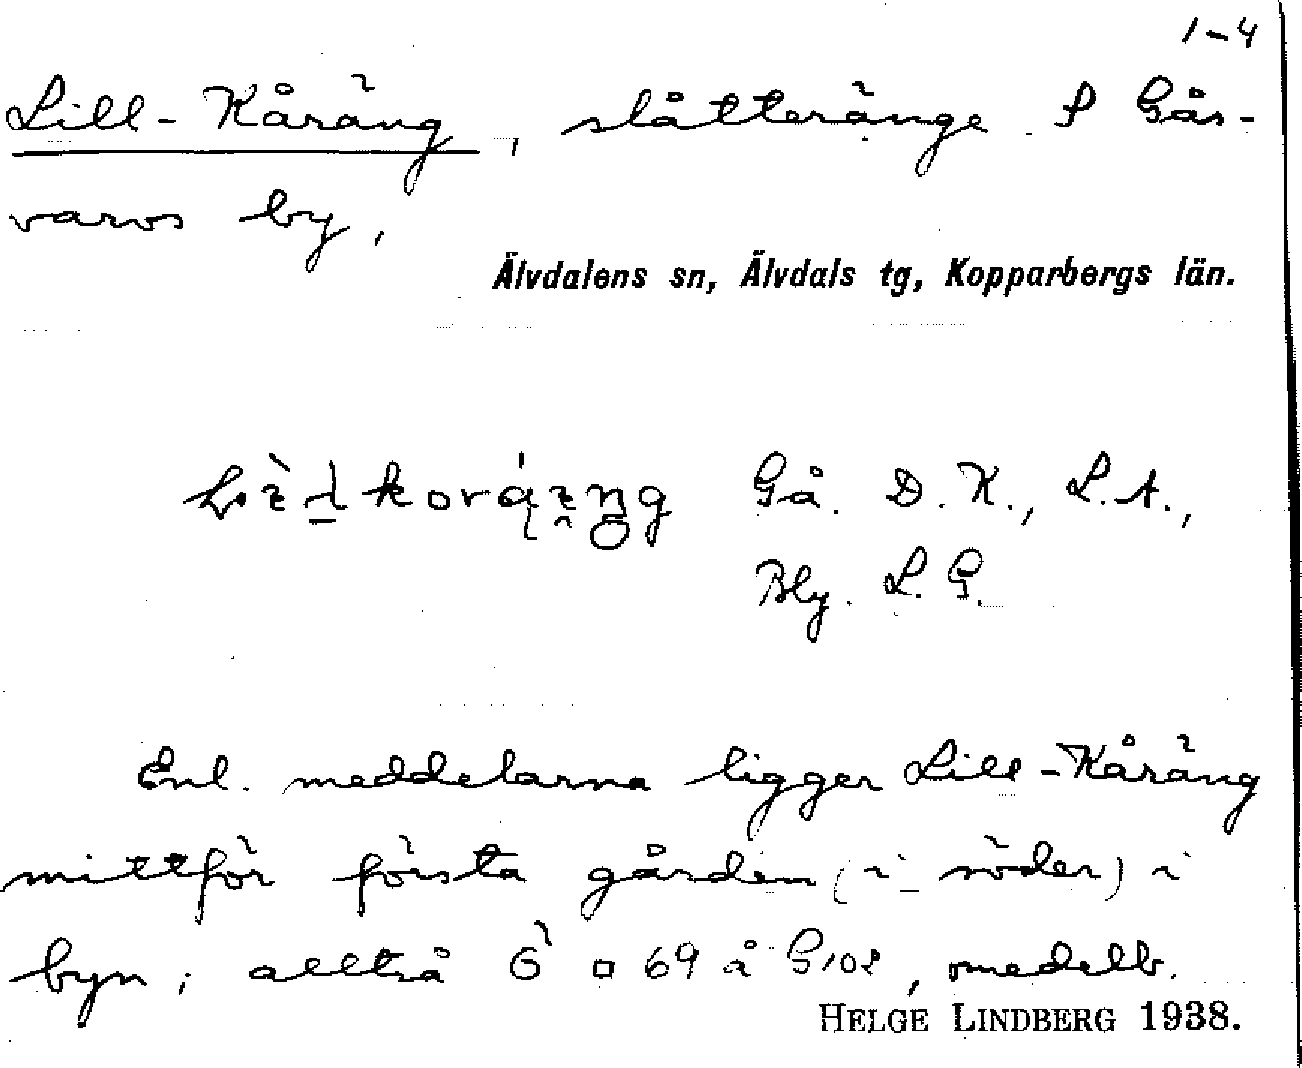 1-4
Lill-Kåräng, slåtteränge S Gås-
varvs by,
Älvdalens sn, Älvdals tg, Kopparbergs län.
Gå. D.K., L.A.,
Bly. L.G.
Enl. meddelarna ligger Lill-Kåräng
mittför första gården (i söder) i
byn; alltså Ö □ 69 å G102, medelb.
HELGE LINDBERG 1938.